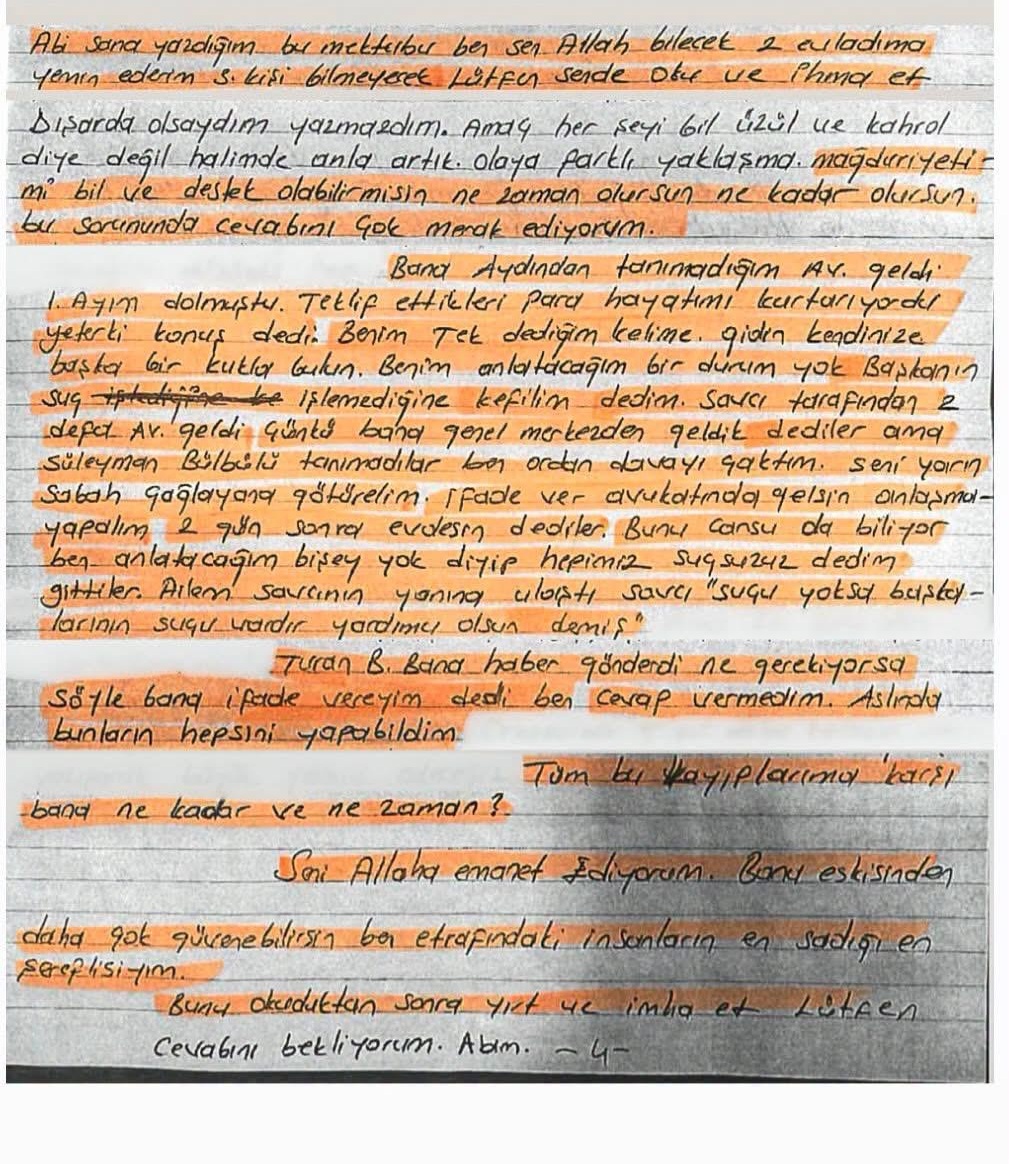 Abi sana yazdığım bu mektubu ben sen Allah bilecek 2 evladıma
yemin ederim 3. kişi bilmeyecek Lütfen sende oku ve imha et
Dışarda olsaydım yazmazdım. Amaç her şeyi bil üzül ve kahrol
diye değil halimde anla artık. olaya farklı yaklaşma. mağduriyeti-
mi bil ve destek olabilirmisin ne zaman olursun ne kadar olursun.
bu sorununda cevabını çok merak ediyorum.
Bana Aydından tanımadığım Av. geldi
1. Ayım dolmuştu. Teklif ettikleri para hayatımı kurtarıyordu
yeterki konuş dedi. Benim Tek dediğim kelime. gidin kendinize
başka bir kukla bulun. Benim anlatacağım bir durum yok Başkanın
suç işlemediğine kefilim dedim. Savcı tarafından 2
defa Av. geldi Çünkü bana genel merkezden geldik dediler ama
Süleyman Bülbülü tanımadılar ben ordan davayı çaktım. seni yarın
sabah Çağlayana götürelim. ifade ver avukatında gelsin anlaşma-
yapalım 2 gün sonra evdesin dediler. Bunu Cansu da biliyor
ben anlatacağım bişey yok diyip hepimiz suçsuzuz dedim
gittiler. Ailem savcının yanına ulaştı savcı "suçu yoksa başka-
larının suçu vardır yardımcı olsun demiş"
Turan B. Bana haber gönderdi ne gerekiyorsa
söyle bana ifade vereyim dedi ben cevap vermedim. Aslında
bunların hepsini yapabildim.
Tüm bu kayıplarıma karşı
bana ne kadar ve ne zaman?
Seni Allaha emanet Ediyorum. Bana eskisinden
daha çok güvenebilirsin ben etrafındaki insanların en sadığı en
şereflisiyim.
Bunu okuduktan sonra yırt ve imha et Lütfen
Cevabını bekliyorum. Abim. -4-